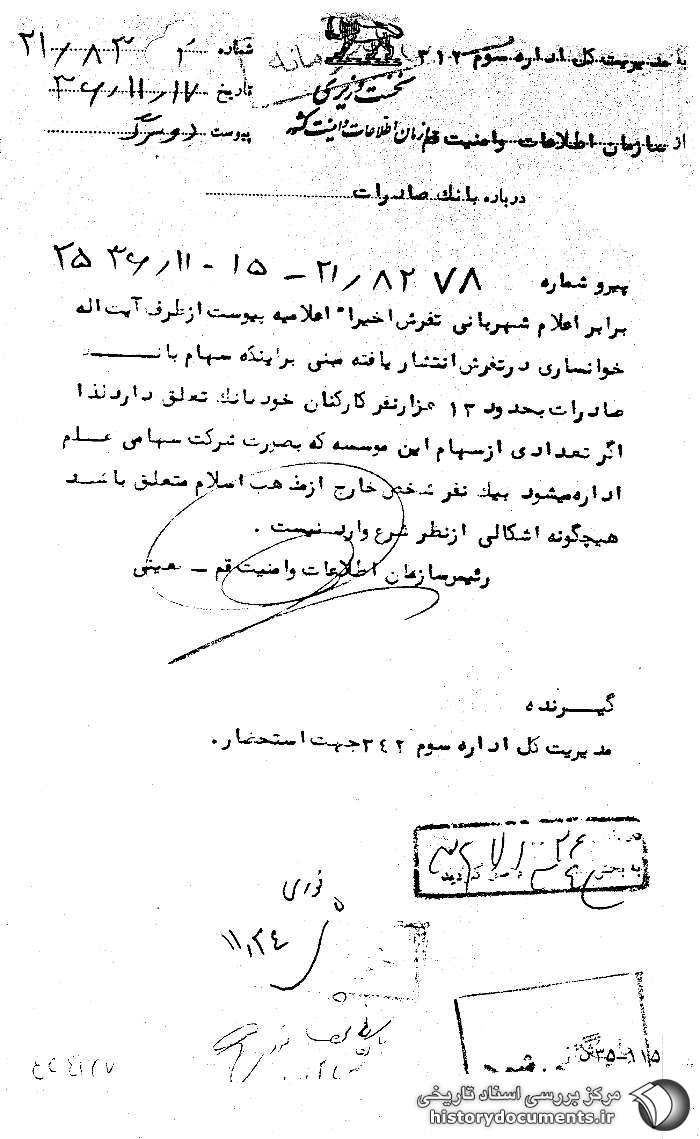 به مدیریت کل اداره سوم ۳۱۲
شماره ۲۱/۸۳
نخست وزیری
تاریخ ۳۶/۱۱/۱۷
سازمان اطلاعات و امنیت کشور
از سازمان اطلاعات وامنیت قم
پیوست
درباره بانك صادرات
پیرو شماره ۲۱/۸۲۷۸ - ۱۵-۱۱/۲۵۳۶
برابر اعلام شهربانی تفرش اخیرا" اعلامیه پیوست ازطرف آیت اله
خوانساری درتفرش انتشار یافته مبنی براینکه سهام بانــــــك
صادرات بحدود ۱۳ هزارنفر کارکنان خود بانك تعلق دارد لذا
اگر تعدادی ازسهام این موسسه که بصورت شرکت سهامی عــام
اداره میشود بیك نفر شخص خارج ازمذهب اسلام متعلق باشــد
هیچگونه اشکالی ازنظر شرع وارد نیست .
رئیس سازمان اطلاعات وامنیت قم ــ معینی
گیــرنده
مدیریت کل اداره سوم ۳٤۲ جهت استحضار .
به بخش
نوری
۱۱/۲٤
۳۵-۱۱۵
مرکز بررسی اسناد تاریخی
historydocuments.ir